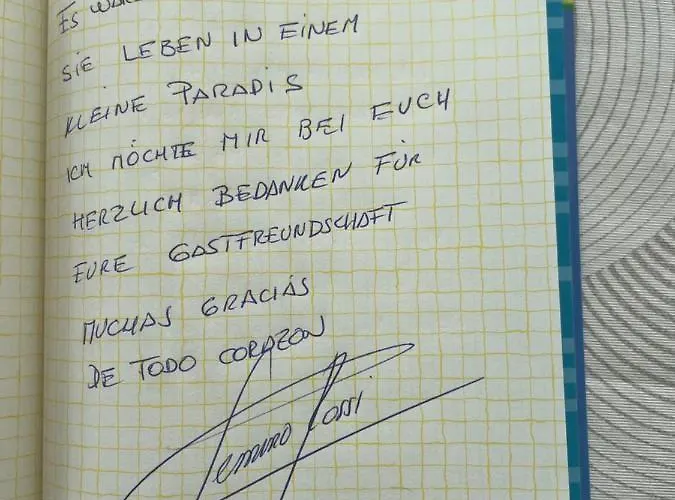 ES WAR
SIE LEBEN IN EINEM
KLEINE PARADIS
ICH MÖCHTE MIR BEI EUCH
HERZLICH BEDANKEN FÜR
EURE GASTFREUNDSCHAFT
MUCHAS GRACIAS
DE TODO CORAZON